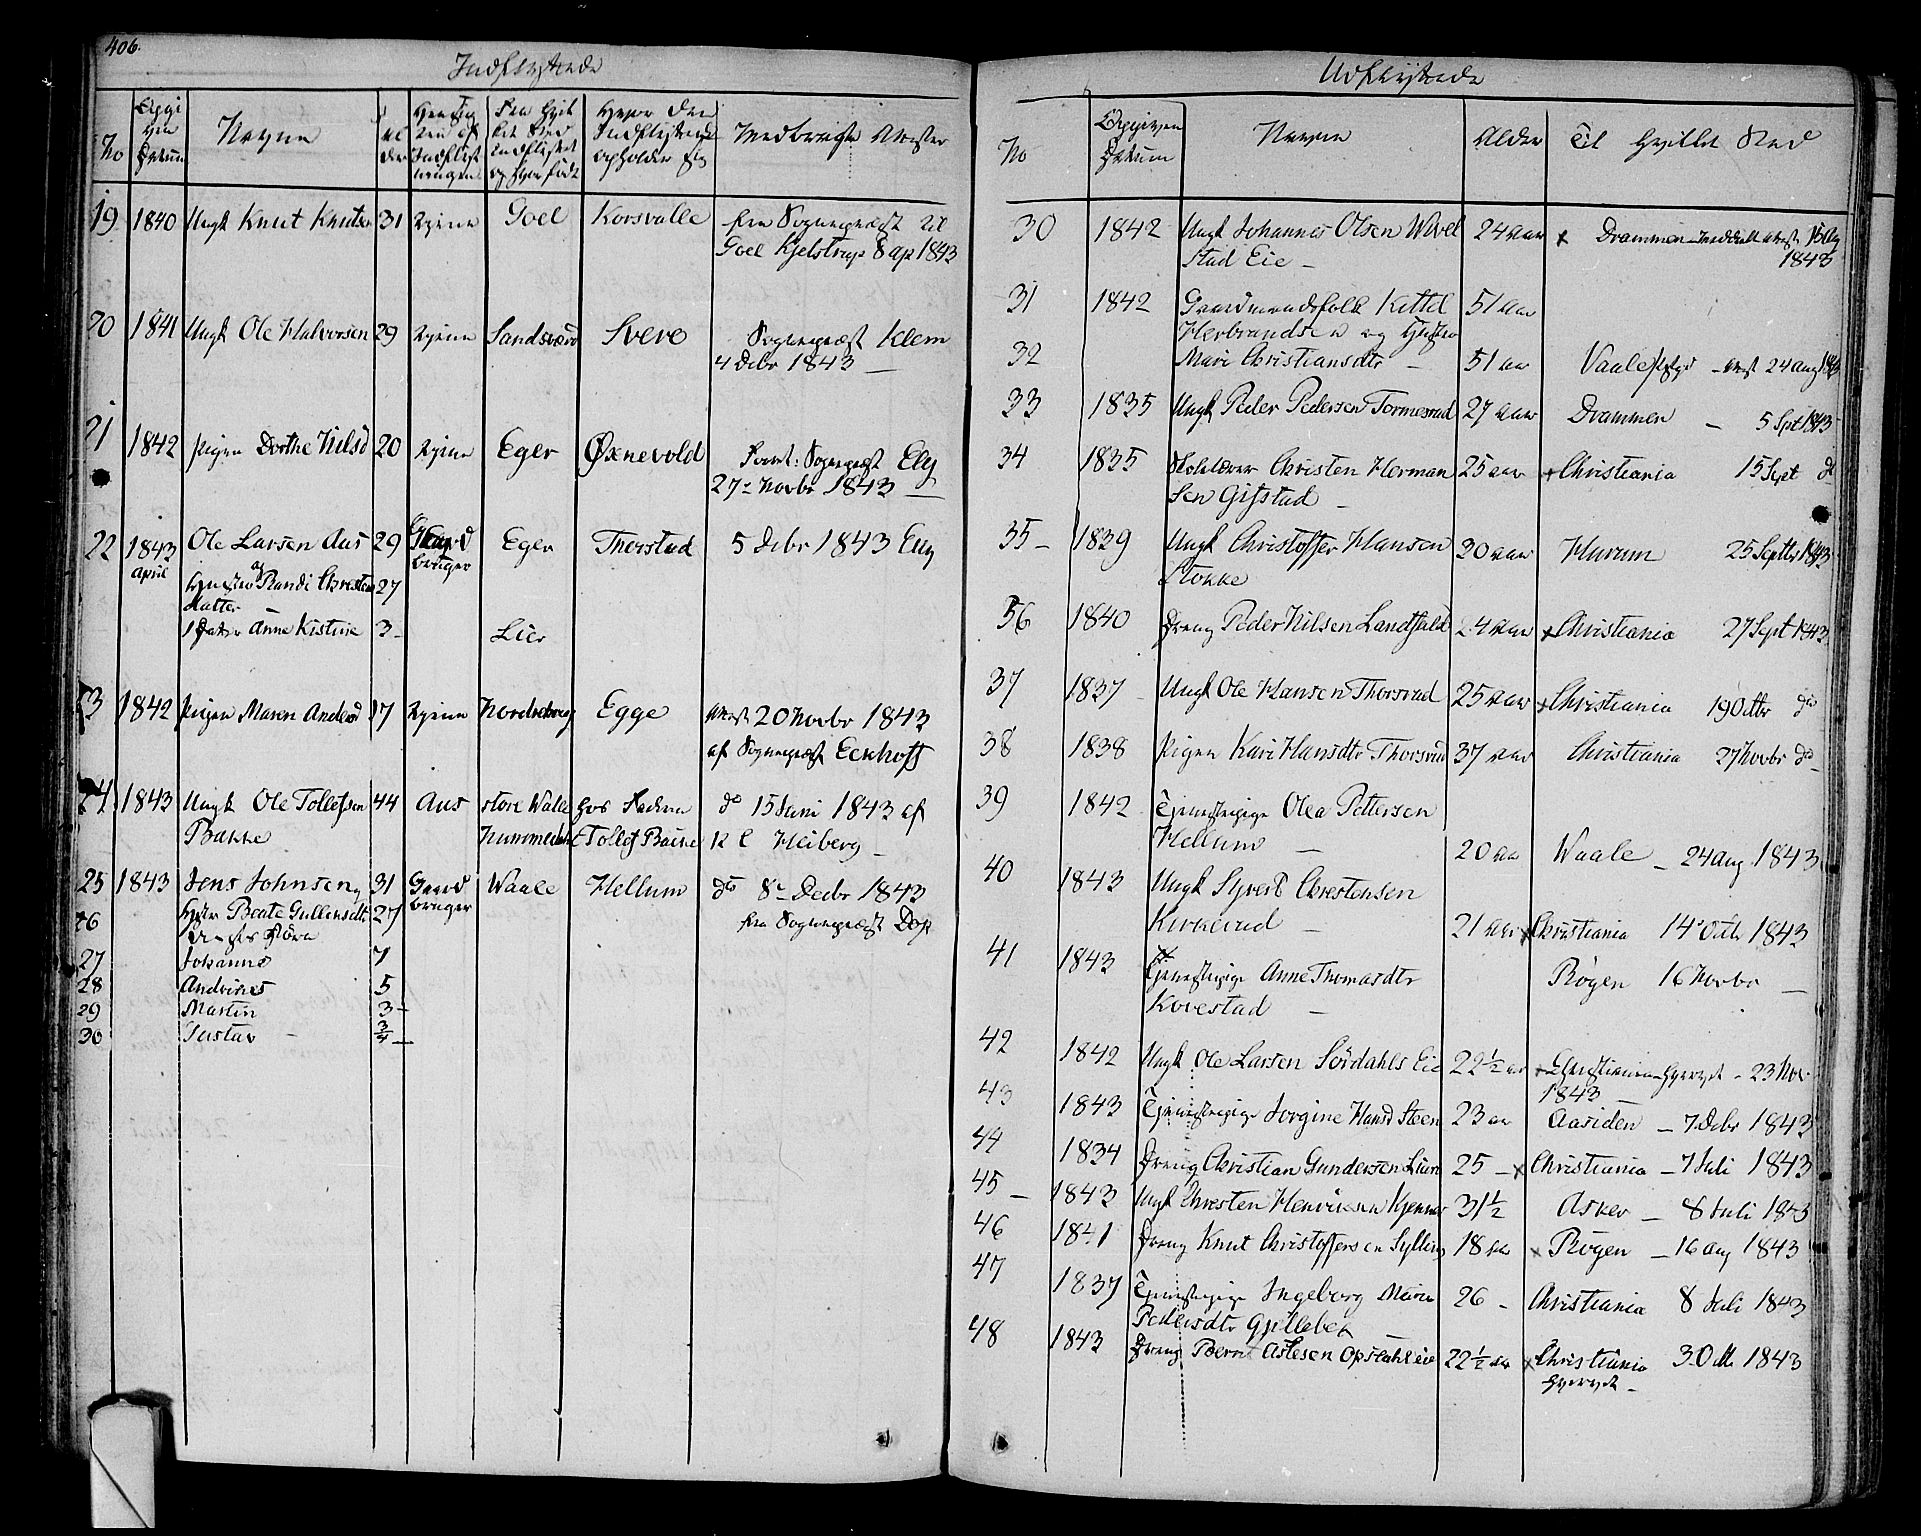 406.
Indflyttede
No
Opgiven Datum
Navne
Alder
Hensigten af Indflytningen
Fra hvilket Sted indflyttet og hvor født
Hvor den Indflyttede opholder sig
Medbragte Attester
19 1840 Ungk Knut Knutsen 31 tjene Goel Korsvalle fra Sognepræst til
Goel Kjelstrup 8 ap 1843
20 1841 Ungk Ole Halvorsen 29 tjene Sandsværd Svere Sognepræst Klem
4 Debr 1843 —
21 1842 Pigen Dorthe Nilsd 20 tjene Eger Øxnevold Sognepræst Ely
27 Novbr 1843 —
22 1843 Ole Larsen Aus 29 Gaardbruger Eger Thorstad 5 Debr 1843 Ely
april og
Hustru Randi Christensdatter 27
1 Datter Anne Kistine 3 Lier
23 1842 Pigen Maren Andersd 17 tjene Egge Attest 20 Novbr 1843
af Sognepræst Eckhoff
24 1843 Ungk Ole Tollefsen 44 Aus store Walle hos Faderen do 15 Juni 1843 af
Bakke Nummedal Tollef Bakke Heiberg —
25 1843 Jens Johnsen 31 Gaardbruger Waale Hellum do 8 Decbr 1843
26 Beate Gullensdtr 27 fra Sognepræst Dop
Børn
27 Johanne 7
28 Andrine 5
29 Martin 3 —
30 Gustav — 3/4 —
Udflyttede
No
Opgiven Datum
Navne
Alder
Til hvilket Sted
30 1842 Ungk Johannes Olsen Wivel 24 aar x Drammen attest 15 Aug
stad Eie — 1843
31 1842 Gaardmandsfolk Kittel 51 aar
Herbrandsen og Hustru
32 Mari Christiansdtr — 51 aar Vaale attest 24 aug 1843
33 1835 Ungk Peder Pedersen Tormesrud 27 aar Drammen — 5 Spt 1843
34 1835 Christen Herman 25 aar x Christiania 15 Sept do
sen Gifstad —
35 — 1839 Ungk Christoffer Hansen 30 aar Hurum 25 Septbr 1843
Stokke
36 1840 Dreng Peder Nilsen Landfald 24 aar x Christiania 27 Sept 1843
37 1837 Ungk Ole Hansen Thorsrud 25 aar x Christiania 19 Octbr do
38 1838 Pigen Kari Hansdtr Thorsrud 37 aar Christiania 27 Novbr do
39 1842 Tjenestepige Olea Pettersen
Hellum — 20 aar Waale — 24 aug 1843
40 1843 Ungk Syvert Christensen
Kirkerud — 21 aar x Christiania 14 Octb 1843
41 1843 Tjenestepige Anne Thomasdtr Røgen 16 Novbr —
Kovestad —
42 1842 Ungk Ole Larsen Sørdahls Eie 22 1/2 aar x Christiania — 23 Nov
1843 —
43 1843 Tjenestepige Jorgine Hansd Steen 23 aar Aasiden — 7 Debr 1843
44 1834 Dreng Christian Gundersen Lierd 25 — x Christiania — 7 Juli 1843
45 — 1843 Ungk Christen Henriksen Kjenner 31 1/2 Asker — 8 Juli 1843
46 1841 Dreng Knut Christoffersen Sylling 18 aar x Røgen — 16 aug 1843
47 1837 Tjenestepige Ingeborg Maria 26 — Christiania 8 Juli 1843
Pedersdtr Gjellebek
48 1843 Dreng Bernt Aslesen Opsahl eie 22 1/2 aar x Christiania 3 Octb 1843